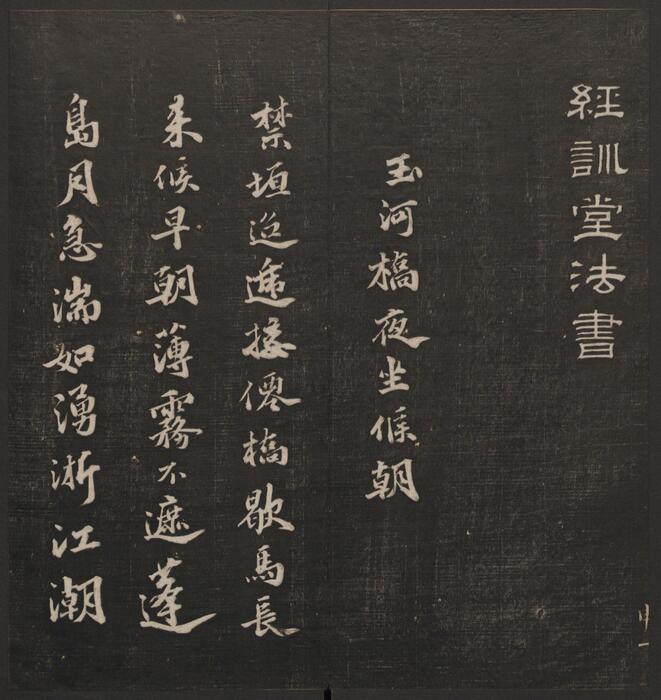 經訓堂法書
玉河橋夜坐候朝
禁垣迢遞接僊橋歇馬長
来候早朝薄霧不遮蓬
島月急湍如湧淅江潮
申一